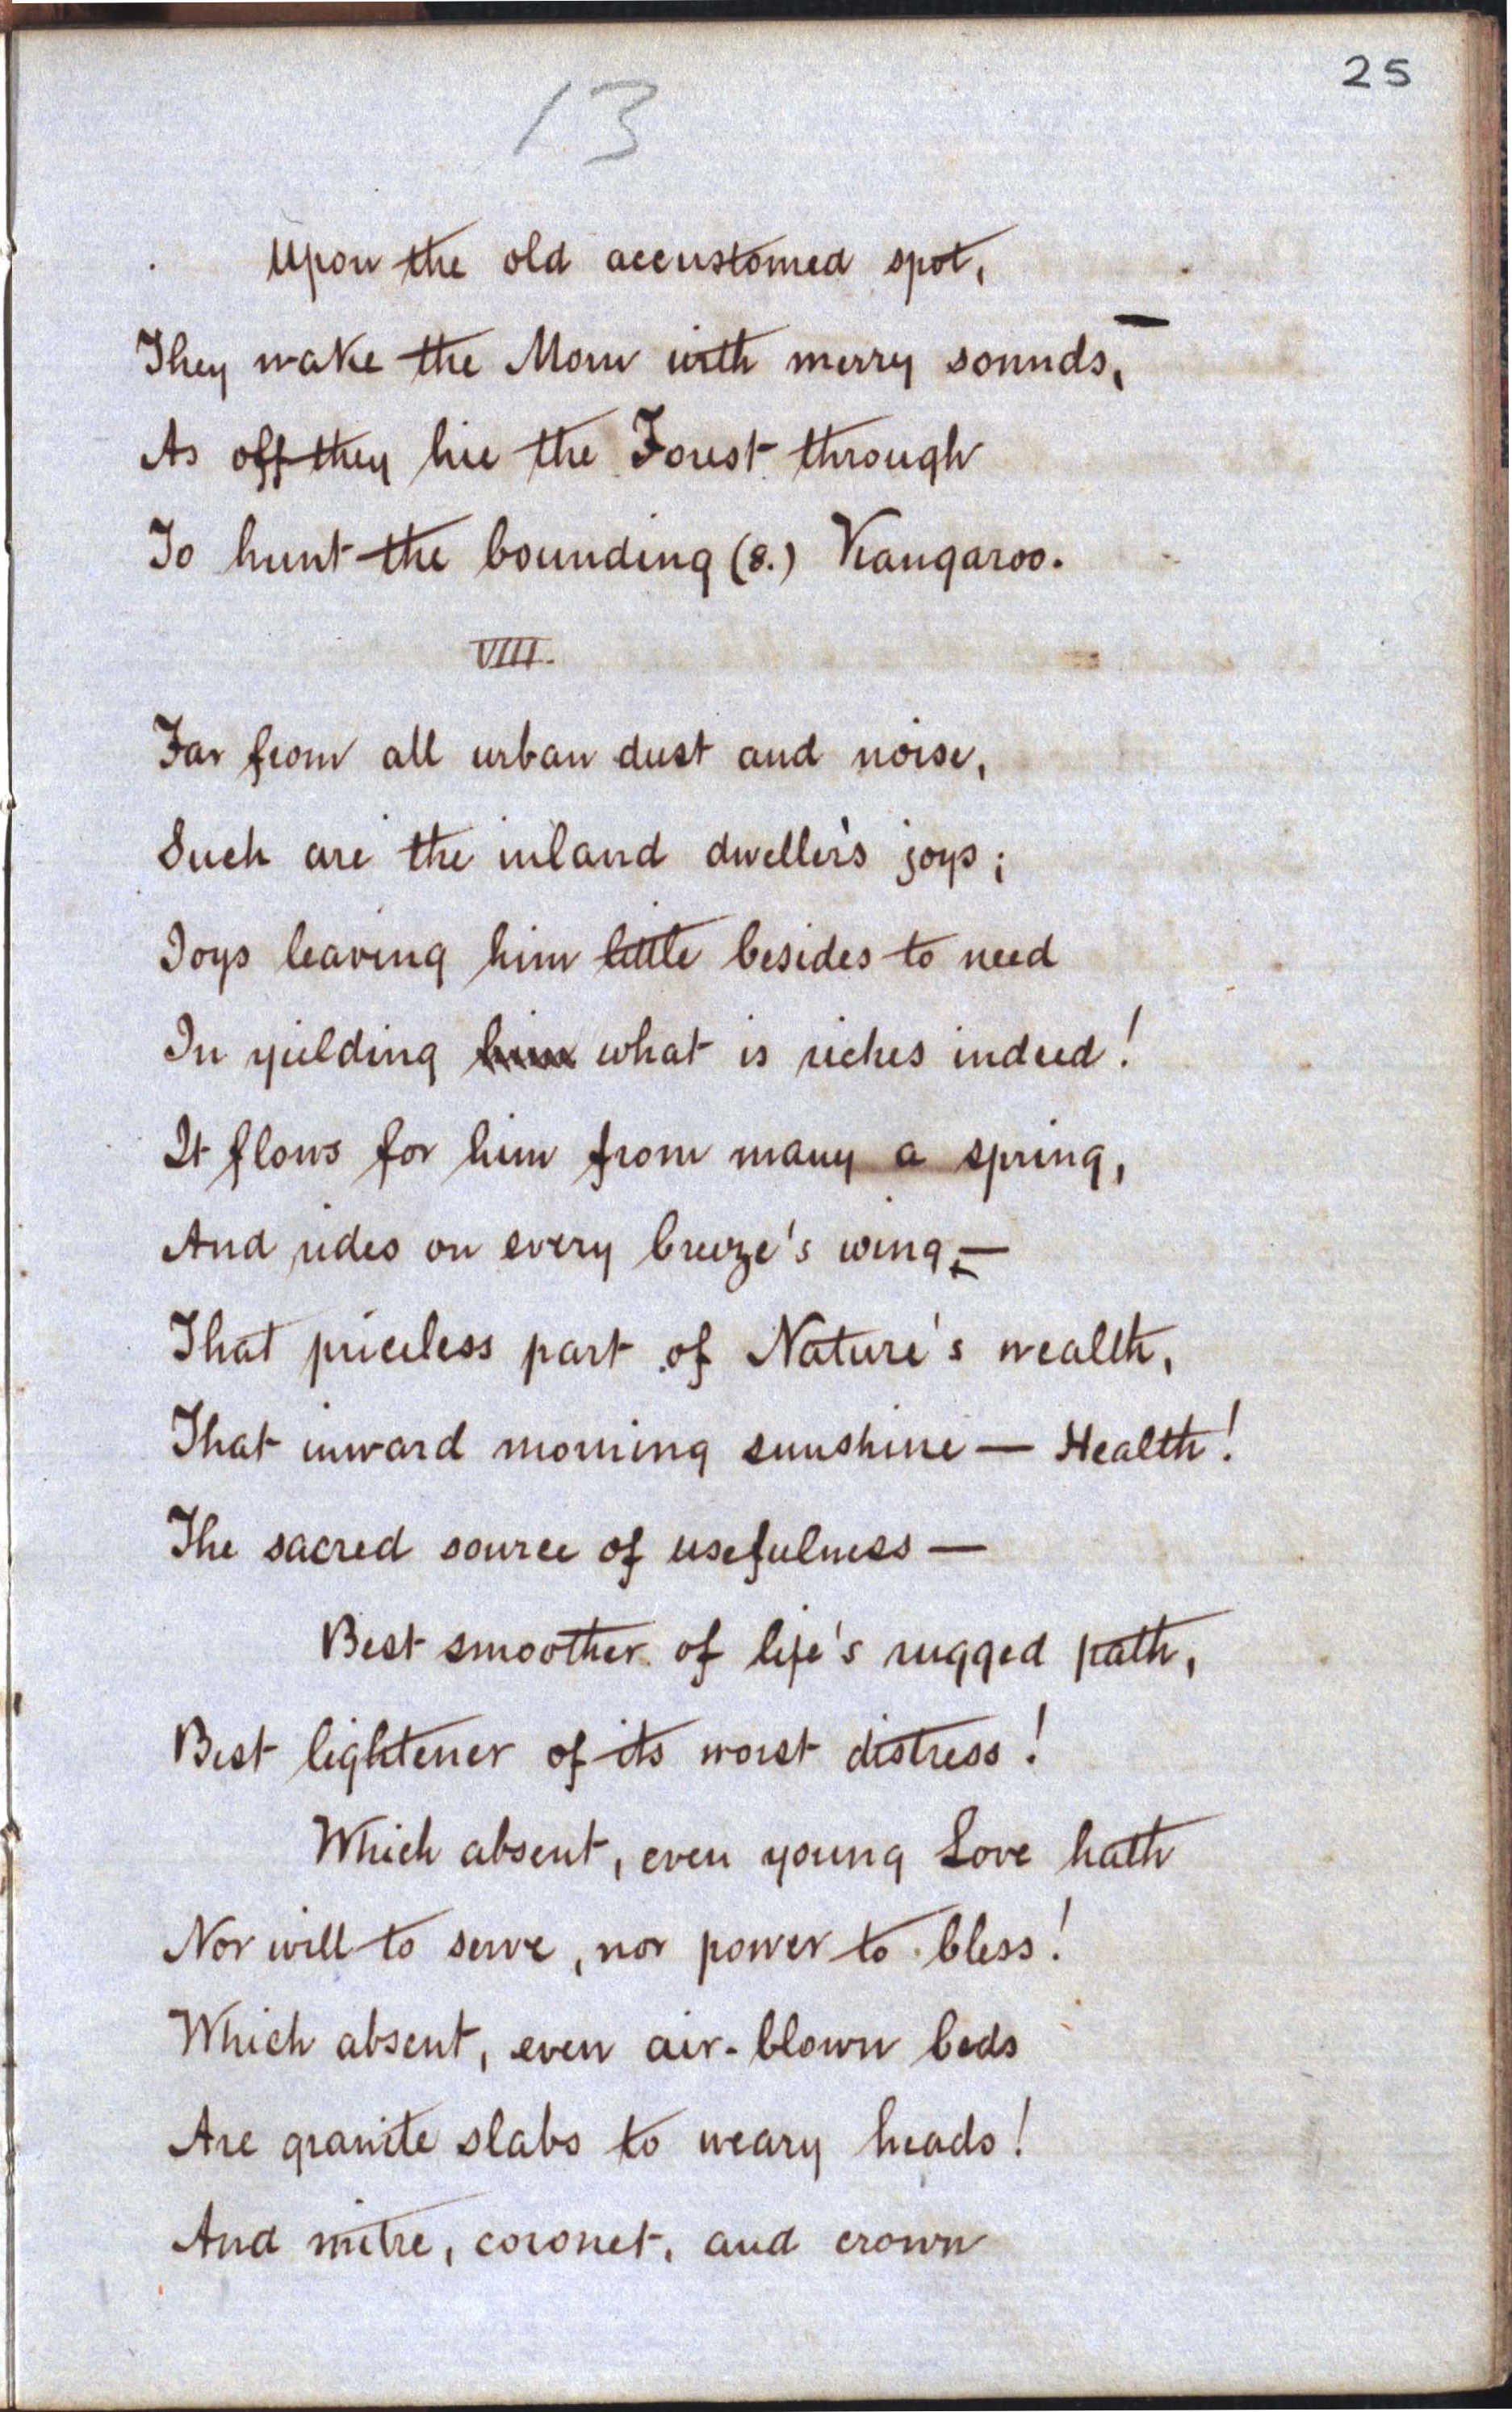 25
13
Upon the old accustomed spot,
They wake the Morn with merry sounds, —
As off they hie the Forest through
To hunt the bounding (8.) Kangaroo.
VIII.
Far from all urban dust and noise,
Such are the inland dweller's joys;
Joys leaving him little besides to need
In yielding him what is riches indeed!
It flows for him from many a spring,
And rides on every breeze's wing,—
That priceless part of Nature's wealth,
That inward morning sunshine — Health!
The sacred source of usefulness —
Best smoother of life's rugged path,
Best lightener of its worst distress!
Which absent, even young Love hath
Nor will to serve, nor power to bless!
Which absent, even air-blown beds
Are granite slabs to weary heads!
And mitre, coronet, and crown